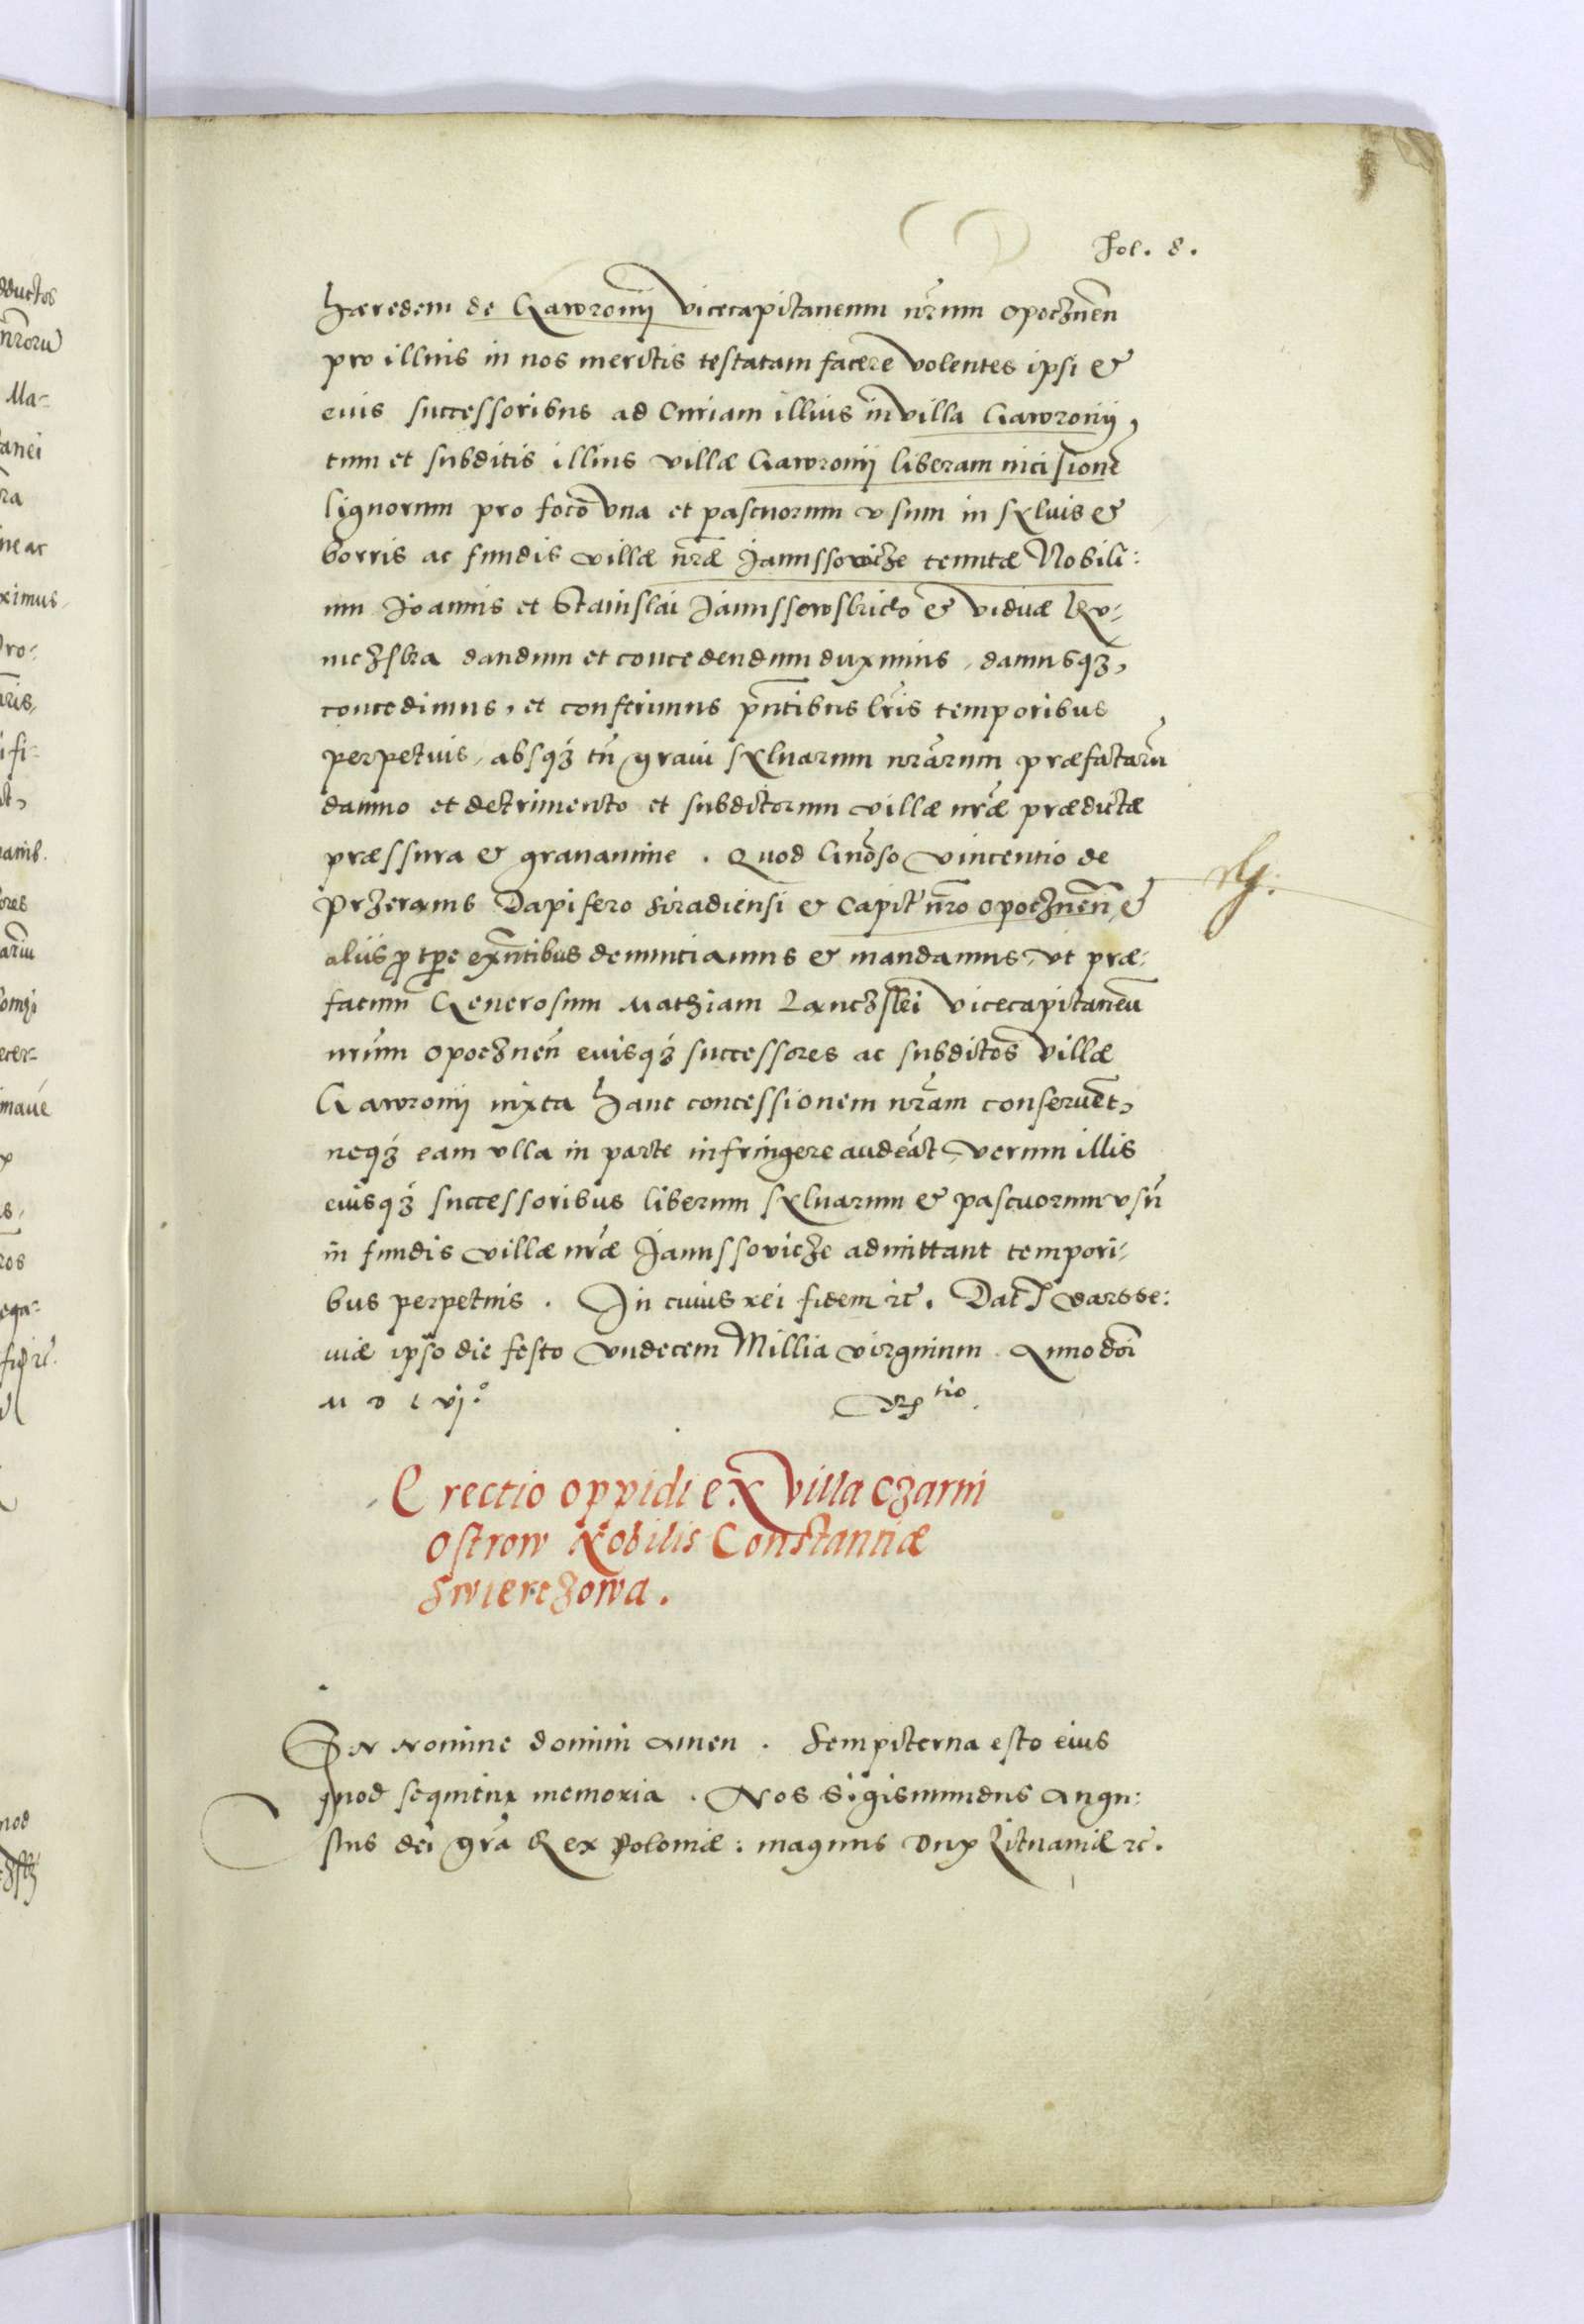 Fol. 8.
hæredem de Gawronij vicecapitaneum nr̃um opocznen̄
pro illius in nos meritis testatam facere volentes ipsi &
euis successoribus ad Curiam illius in villa Gawronij,
tum et subditis illius villæ Gawronij liberam incisionē
lignorum pro foco vna et pascuorum vsum in sÿluis &
borris ac fundis villæ nr̃æ Janussowicze tenutæ Nobili:
um Joannis et Stanislai Janussowskich & viduæ
dandum et concedendum duximus, damusqȝ,
concedimus, et conferimus pn̄tibus lr̃is temporibus
perpetuis, absqȝ tn̄ graui sÿluarum nr̃arum præfactarū
damno et detrimento et subditorum villæ nr̃æ prædictæ
præssura & grauamine. Quod Gn̄oso Vincentio de
Przerambs Dapifero Siradiensi & Capit' nr̃o opocznen̄ &
aliis ꝓ tꝑe exn̄tibus denunciamus & mandamus, vt præ-
fatum Generosum Mathiam vicecapitaneū
nr̃um opocznen̄ euisqȝ successores ac subditos villæ
Gawronij iuxta hanc concessionem nr̃am conseruēt,
neqȝ eam vlla in parte infringere audeāt, verum illis
eiusqȝ successoribus liberum sÿluarum & pascuorum vsū
in fundis villæ nr̃æ Janussovicze admittant tempori-
bus perpetuis. In cuius rei fidem ꝛc̄. Dat̄ Varsse:
uiæ ipso die festo Vndecem Millia virginum Anno dn̄i
M D L vj°
Erectio oppidi ex villa Czarni
Ostrow Nobilis Constantiæ
Zwierczowa.
In Nomine domini Amen. Sempiterna esto eius
quod sequitur memoria. Nos Sigismundus Augu:
stus dei gr̃a Rex Poloniæ: magnus Dux Lituaniæ ꝛc̄.